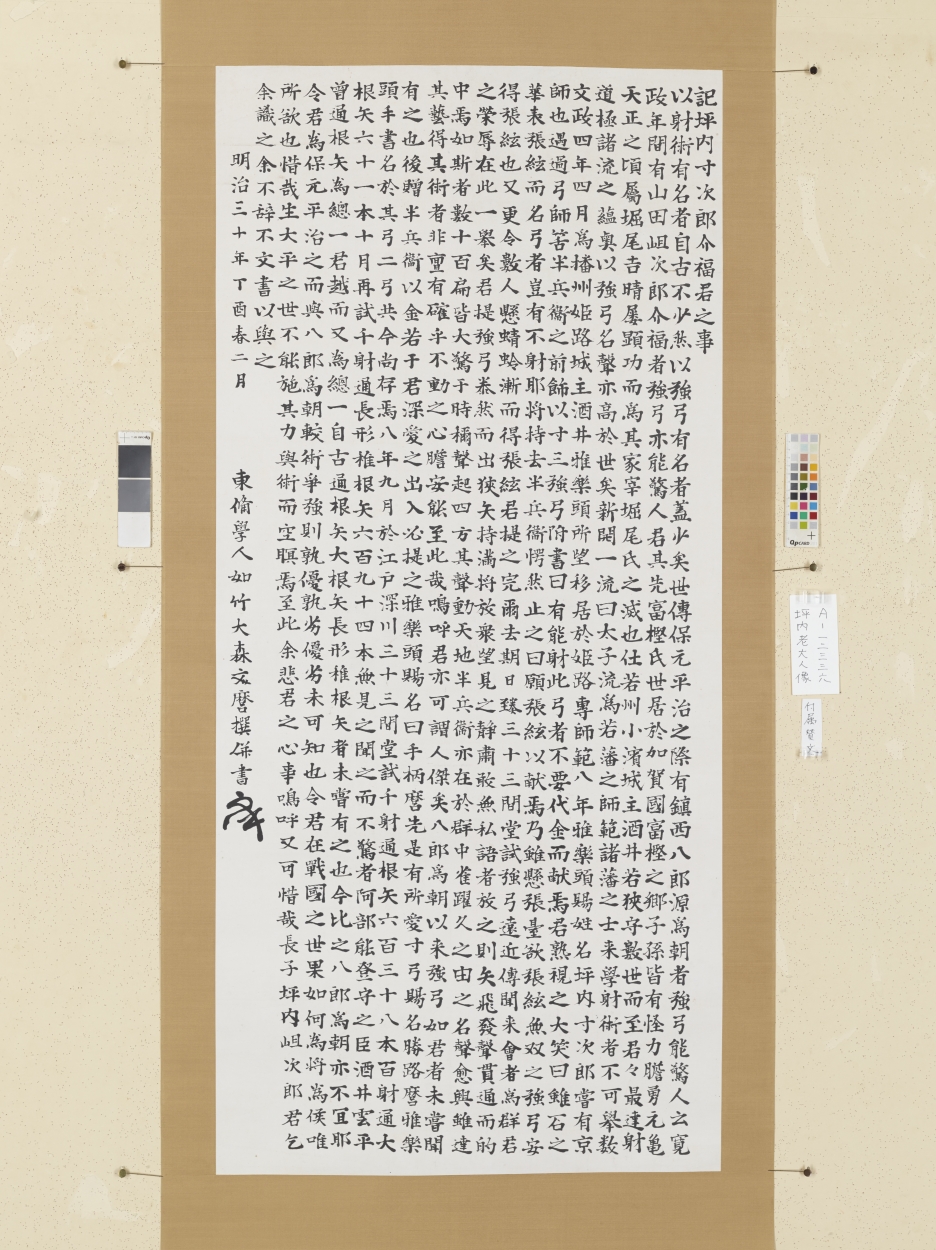 記坪内寸次郎介福君之事
以射術有名者自古不少然以強弓有名者蓋少矣世傳保元平治之際有鎮西八郎源為朝者強弓能驚人云寛
政年間有山田岨次郎介福者強弓亦能驚人君其先富樫氏世居於加賀國富樫之郷子孫皆有怪力膽勇元亀
天正之頃屬堀尾吉晴屡顕功而為其家宰堀尾氏之滅也仕若州小濱城主酒井若狭守數世而至君々最達射
道極諸流之蘊奥以強弓名聲亦高於世矣新開一流曰太子流為若藩之師範諸藩之士来學射術者不可舉数
文政四年四月為播州姫路城主酒井雅樂頭所望移居於姫路専師範八年雅樂頭賜姓名坪内寸次郎嘗有京
師也遇過弓師筈半兵衞之前餝以寸三強弓附書曰有能射此弓者不要代金而献焉君熟視之大笑曰雖石之
華表張絃而名弓者豈有不射耶将持去半兵衞愕然止之曰願張絃以献焉乃雖懸張臺欲張絃無双之強弓安
得張絃也又更令數人懸蜻蛉漸而得張絃君提之完爾去期日臻三十三間堂試強弓遠近傳聞来會者為群君
之榮辱在此一擧矣君提強弓泰然而出狭矢持満将放衆望見之静肅敢無私語者放之則矢飛發聲貫通而的
中焉如斯者数十百扁皆大驚于時檑聲起四方其聲動天地半兵衞亦在於群中雀躍久之由之名聲愈興雖達
其藝得其術者非亶有確乎不動之心膽安能至此哉嗚呼君亦可謂人傑矣八郎為朝以来強弓如君者未嘗聞
有之也後贈半兵衞以金若干君深愛之出入必提之雅樂頭賜名曰手柄麿先是有所愛寸弓賜名勝路麿雅樂
頭手書名於其弓二弓共今尚存焉八年九月於江戸深川三十三間堂試千射通根矢六百三十八本百射通大
根矢六十一本十月再試千射通長形椎根矢六百九十四本無見之聞之而不驚者阿部能登守之臣酒井雲平
曽通根矢為總一君越而又為總一自古通根矢大根矢長形椎根矢者未嘗有之也今比之八郎為朝亦不宜耶
令君為保元平治之而與八郎為朝較術爭強則孰優孰劣優劣未可知也令君在戰國之世果如何為将為侯唯
所欲也惜哉生大平之世不能施其力與術而空瞑焉至此余悲君之心事嗚呼又可惜哉長子坪内岨次郎君乞
余識之余不辞不文書以與之
明治三十年丁酉春二月
東脩學人如竹大森安麿撰併書
A-一二三三六
坪内老大人像
付属品